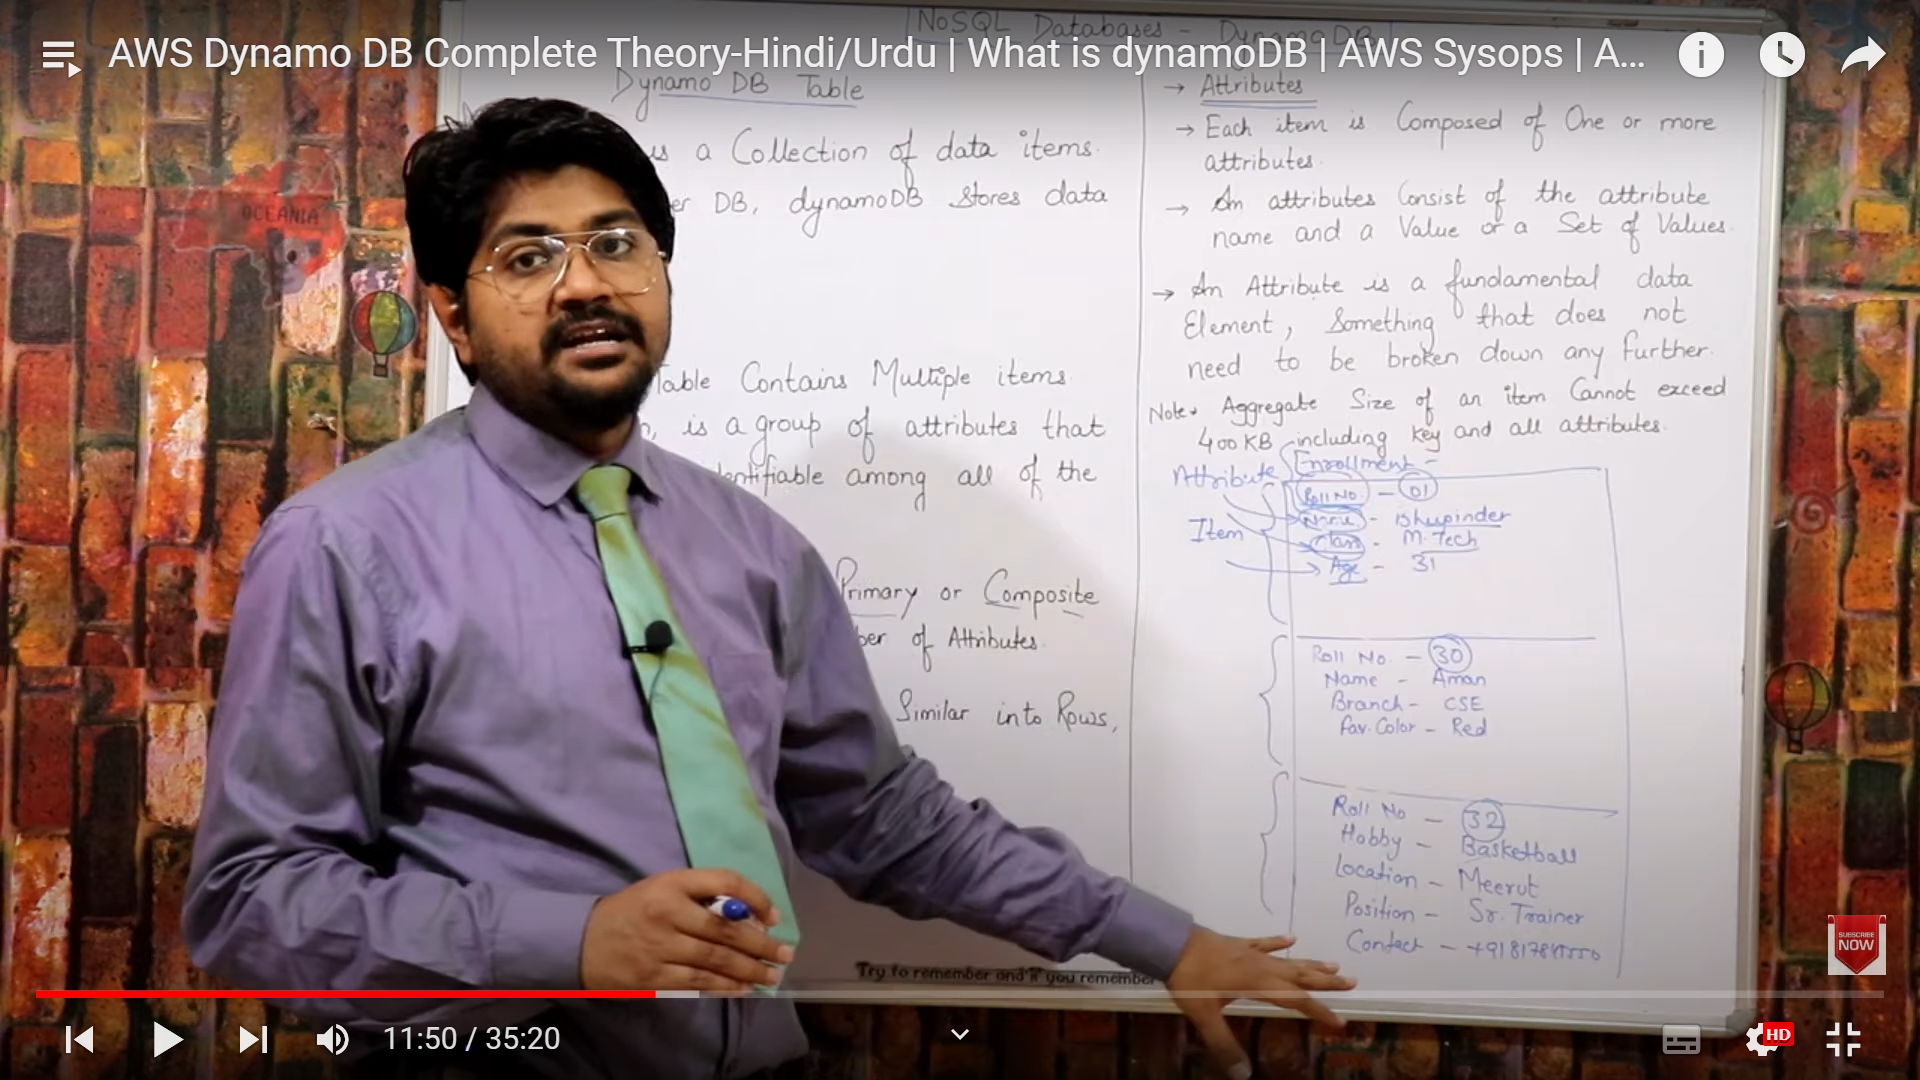 AWS Dynamo DB Complete Theory-Hindi/Urdu | What is dynamoDB | AWS Sysops | A...
NoSQL Databases - DynamoDB
Dynamo DB Table
is a Collection of data items.
er DB, dynamoDB Stores data
Table Contains Multiple items.
is a group of attributes that
entifiable among all of the
Primary or Composite
ber of Attributes.
Similar into Rows,
→ Attributes
→ Each item is Composed of One or more
attributes.
→ An attributes Consist of the attribute
name and a Value or a Set of Values.
→ An Attribute is a fundamental data
Element, Something that does not
need to be broken down any further.
Note: Aggregate Size of an item Cannot exceed
400 KB including key and all attributes.
Attribute
Enrollment -
Item
Roll No. - 01
Name - Bhupinder
Class - M.Tech
Age - 31
Roll No. - 30
Name - Aman
Branch - CSE
Fav. Color - Red
Roll No - 32
Hobby - Basketball
Location - Meerut
Position - Sr. Trainer
Contact -
Try to remember and if you remember
OCEANIA
SUBSCRIBE
NOW
11:50 / 35:20
HD